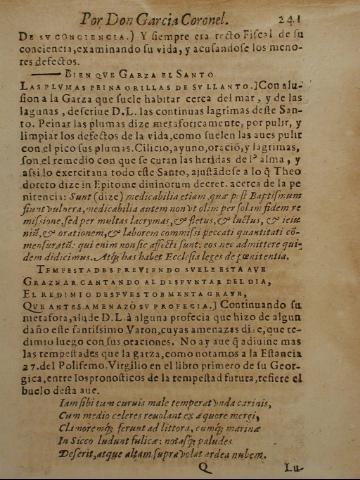 Por Don Garcia Coronel. 241
DE SV CONCIENCIA.) Y siempre era recto Fiscal de su
conciencia, examinando su vida, y acusandose los meno-
res defectos.
BIEN QVE GARZA EL SANTO
LAS PLVMAS PEINA ORILLAS DE SV LLANTO.] Con alu-
sion a la Garza que suele habitar cerca del mar, y de las
lagunas, descriue D. L. las continuas lagrimas deste San-
to. Peinar las plumas dize metaforicamente, por pulir, y
limpiar los defectos de la vida, como suelen las aues pulir
con el pico sus plumas. Cilicio, ayuno, oració, y lagrimas,
son el remedio con que se curan las heridas del alma, y
assi lo exercitaua todo este Santo, ajustādose a lo q̃ Theo
doreto dize in Epitome diuinorum decret. acerca de la pe
nitencia: Sunt (dize) medicabilia etiam, quæ post Baptismum
fiunt vulnera, medicabilia autem non vt olim per solam fidem re
missione, sed per multas lacrymas, & fletus, & luctus, & ieiu
niũ, & orationem, & laborem commissi peccati quantitati cõ-
mensuratũ: qui enim non sic affecti sunt: eos nec admittere qui-
dem didicimus. Atq; has habet Ecclesia leges de pœnitentia.
TEMPESTADES PREVIENDO SVELE ESTA AVE
GRAZNAR CANTANDO AL DESPVNTAR DEL DIA,
EL REDIMIO DESPVES TORMENTA GRAVE,
QVE ANTES AMENAZÒ SV PROFECIA.] Continuando su
metafora, alude D. L. à alguna profecia que hizo de algun
daño este santissimo Varon, cuyas amenazas dize, que re-
dimio luego con sus oraciones. No ay aue q̃ adiuine mas
las tempestades que la garza, como notamos a la Estancia
27. del Polifemo. Virgilio en el libro primero de su Geor-
gica, entre los pronosticos de la tempestad futura, refiere el
buelo desta aue.
Iam sibi tam curuis male temperat vnda carinis,
Cum medio celeres reuolant ex æquore mergi,
Clamoremq; ferunt ad littora, cumq; marinæ
In Sicco ludunt fulicæ: notasq; paludes
Deserit, atque altam supra volat ardea nubem.
Q Lu-